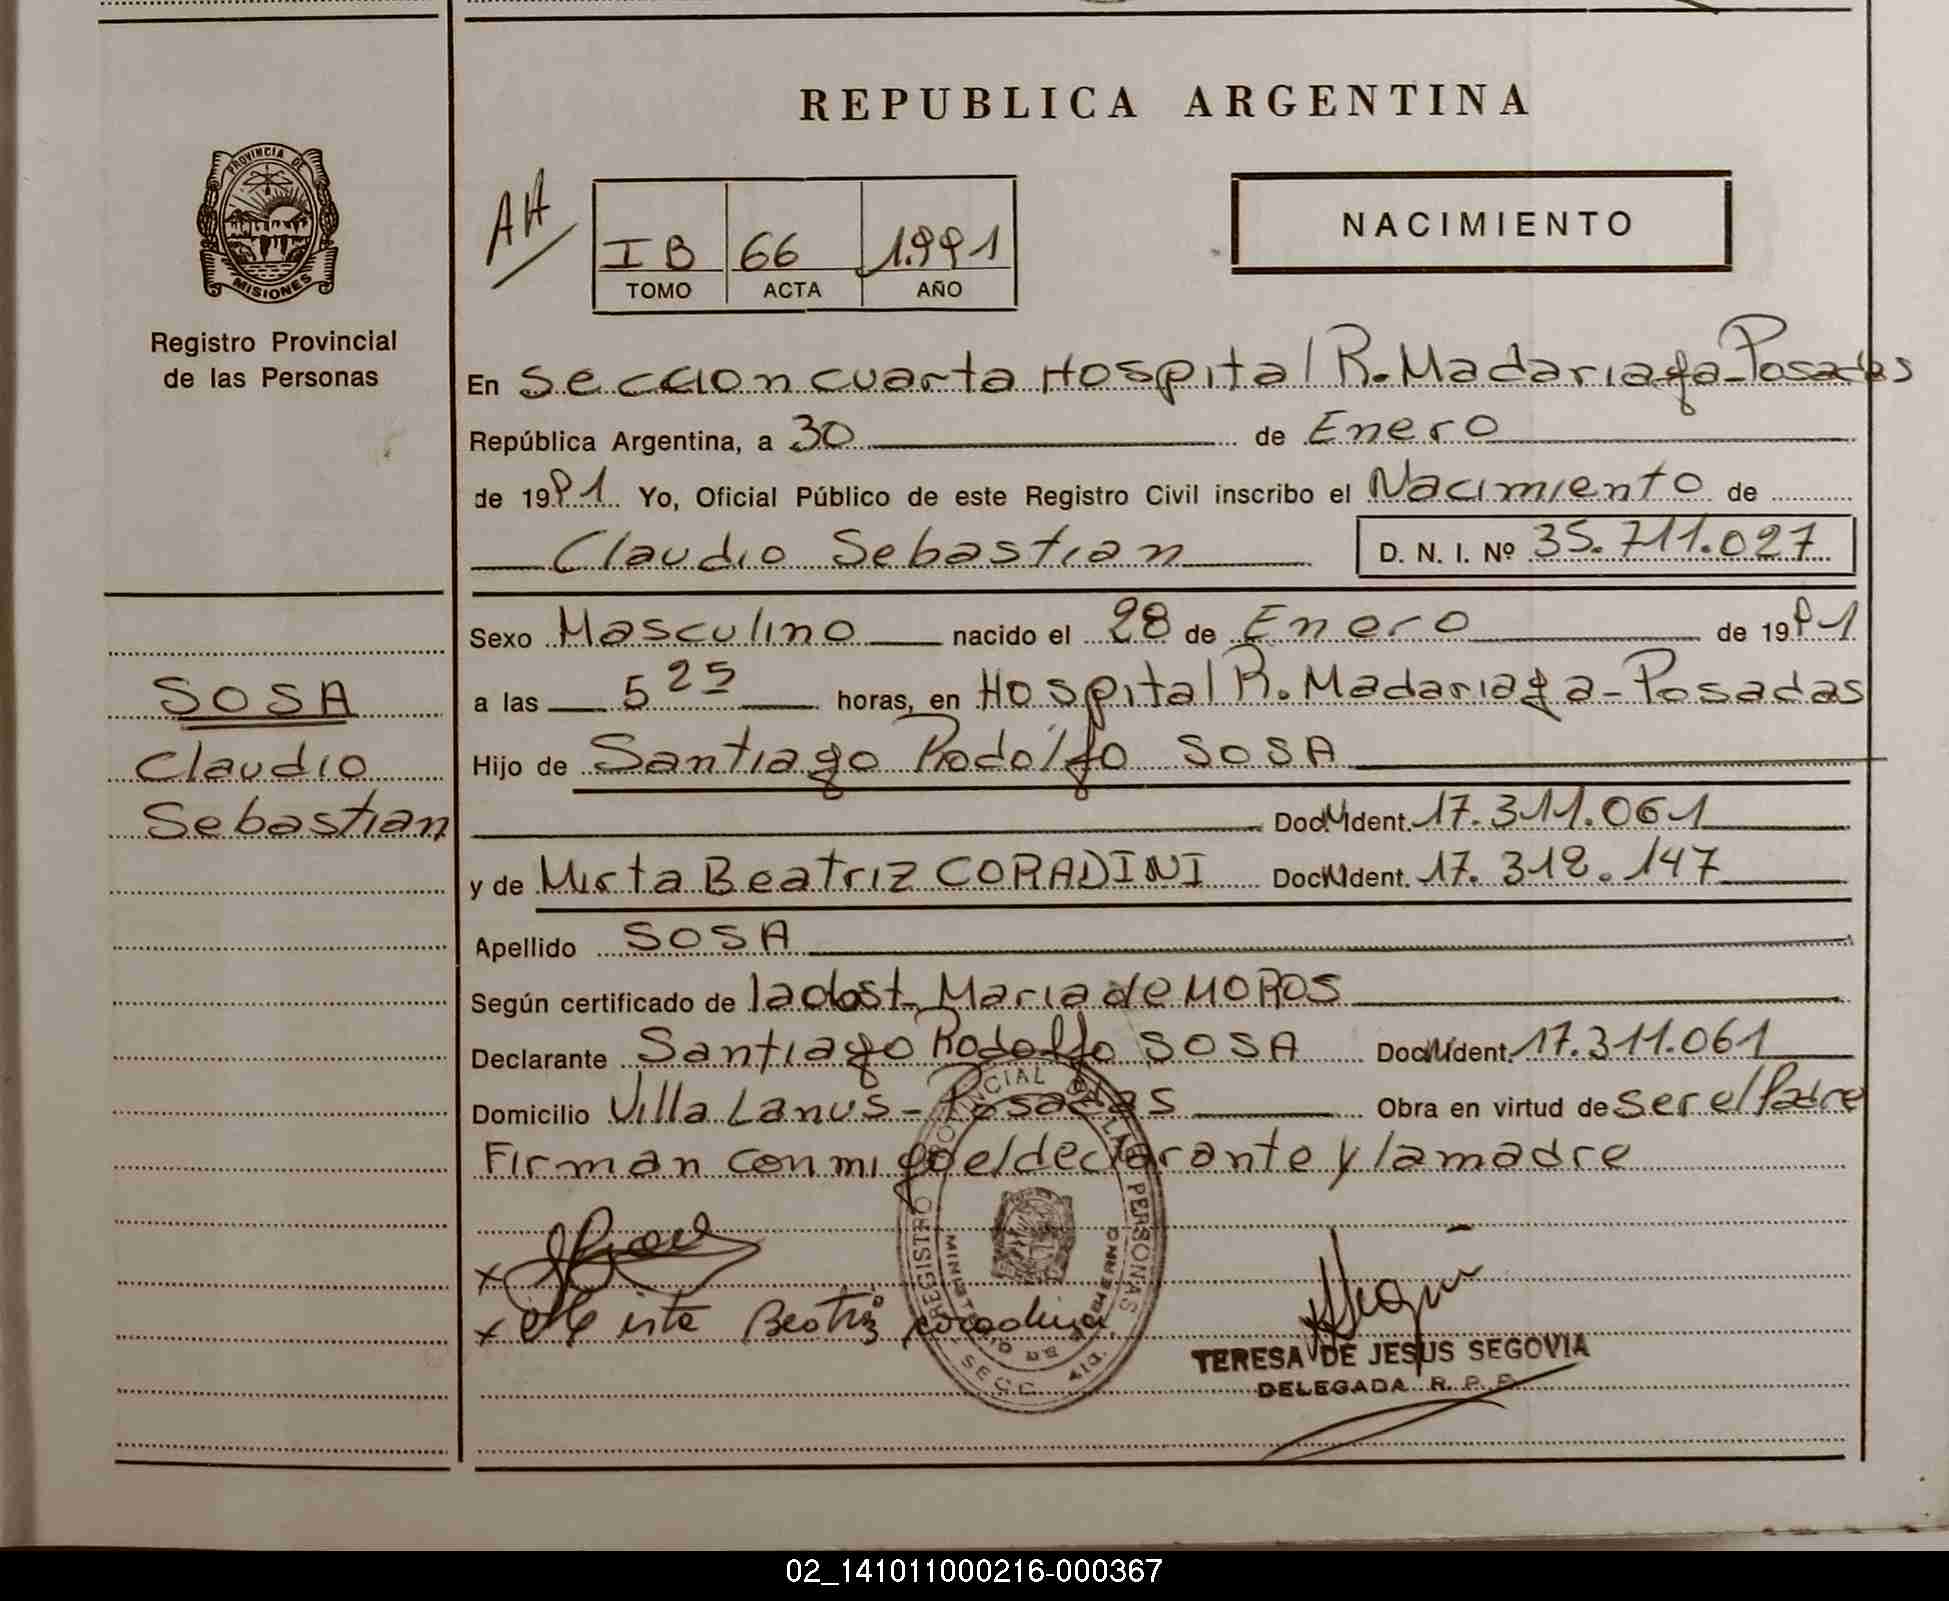 REPUBLICA ARGENTINA
PROVINCIA DE
MISIONES
Registro Provincial
de las Personas
AH
IB 66 1.991
TOMO ACTA AÑO
NACIMIENTO
En Seccion cuarta Hospital R. Madariaga - Posadas
República Argentina, a 30 de Enero
de 1991 Yo, Oficial Público de este Registro Civil inscribo el Nacimiento de
Claudio Sebastian D. N. I. Nº 35.711.027
Sexo Masculino nacido el 28 de Enero de 1991
a las 5 25 horas, en Hospital R. Madariaga - Posadas
SOSA
Claudio
Sebastian
Hijo de Santiago Rodolfo SOSA
Doc. Ident. 17.311.061
y de Mirta Beatriz CORADINI Doc. Ident. 17.318.147
Apellido SOSA
Según certificado de la obst. Maria de MOROS
Declarante Santiago Rodolfo SOSA Doc. Ident. 17.311.061
Domicilio Villa Lanus - Posadas Obra en virtud de ser el Padre
Firman conmigo el declarante y la madre
REGISTRO PROVINCIAL DE LAS PERSONAS
MINISTERIO DE GOBIERNO
SECC. 4ta.
x
x Mirta Beatriz
TERESA DE JESUS SEGOVIA
DELEGADA R. P. P.
02_141011000216-000367